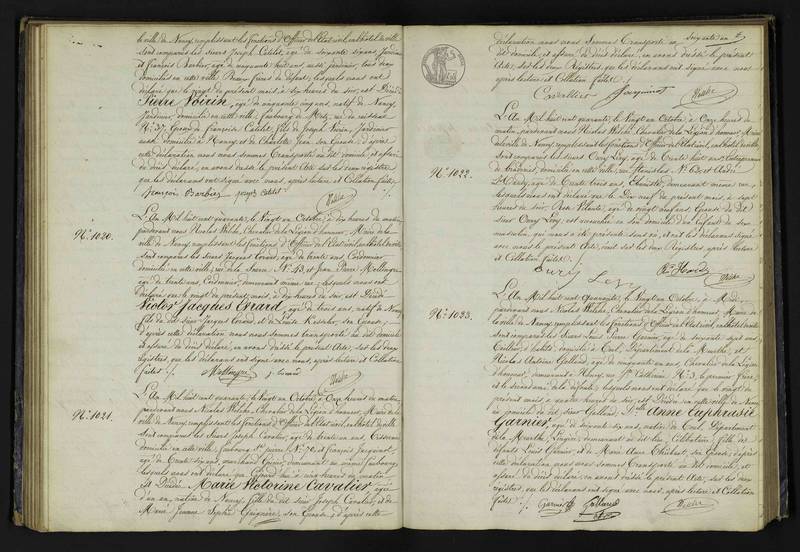 la ville de Nancy, remplissant les fonctions d'Officier de l'État civil, en l'hôtel de ville
sont comparus les sieurs Joseph Catelet, âgé de soixante six ans, Jardinier
et François Barbier, âgé de cinquante huit ans, aussi jardinier, tous deux
domiciliés en cette ville, Beaux frères du défunt, lesquels nous ont
déclaré que le vingt du présent mois, à dix heures du soir, est Décédé
Pierre Voirin, âgé de cinquante cinq ans, natif de Nancy,
Jardinier, domicilié en cette ville, faubourg de Metz
N.° 37, Époux de Françoise Catelet, fils de Joseph Voirin, Jardinier
aussi domicilié à Nancy, et de Charlotte Jean son Épouse, d'après
cette déclaration nous nous sommes Transporté en dit domicile, et assuré
du décès déclaré, en avons dressé le présent Acte, sur les deux registres
que les déclarants ont signé avec nous, après lecture et Collation faites
françois Barbier joseph catelet Welche
N.° 1020.
L'An Mil huit cent quarante, le Vingt un Octobre, à dix heures du matin,
pardevant nous Nicolas Welche, Chevalier de la Légion d'honneur, Maire de la
ville de Nancy, remplissant les fonctions d'Officier de l'État civil, en l'hôtel de ville
sont comparus les sieurs Jacques Girard, âgé de trente ans, Cordonnier
domicilié en cette ville, rue de la Source N.° 43, et Jean Pierre Mollingre
âgé de trente ans, Cordonnier, demeurant même rue; lesquels nous ont
déclaré que le vingt du présent mois, à dix heures du soir, est Décédé
Victor Jacques Girard, âgé de trois ans, natif de Nancy,
fils du dit sieur Jacques Girard, et de Louise Kessler, son Épouse;
d'après cette déclaration nous nous sommes transporté au dit domicile
et assuré du décès déclaré, en avons dressé le présent Acte, sur les deux
registres, que les déclarants ont signé avec nous, après lecture et Collation
faites Mollingre j. Girard Welche
N.° 1021.
L'An Mil huit cent quarante, le Vingt un Octobre à Onze heures du matin,
pardevant nous Nicolas Welche, Chevalier de la Légion d'honneur, Maire de la
ville de Nancy, remplissant les fonctions d'Officier de l'État civil, en l'hôtel de ville
sont comparus les sieurs Joseph Cavalier, âgé de trente un ans, Tisserand
domicilié en cette ville, faubourg St. Pierre N.° et François Jacquinot,
âgé de trente six ans, demeurant au même faubourg
lesquels nous ont déclaré que à cinq heures du matin
est Décédée Marie Victorine Cavalier, âgée
d'un an, native de Nancy, fille du dit sieur Joseph Cavalier, et de
Marie Jeanne Sophie son Épouse; d'après cette
déclaration nous nous sommes Transporté en
dit domicile, et assuré du décès déclaré, en avons dressé le présent
Acte, sur les deux Registres, que les déclarants ont signé avec nous
après lecture et Collation faites
Cavallier Jacquinot Welche
N.° 1022.
L'An Mil huit cent quarante, le Vingt un Octobre, à Onze heures du
matin, pardevant nous Nicolas Welche, Chevalier de la Légion d'honneur, Maire
de la ville de Nancy, remplissant les fonctions d'Officier de l'État civil, en l'hôtel de ville
sont comparus les sieurs Oury Lévy, âgé de trente huit ans, Entrepreneur
domicilié en cette ville, rue Stanislas N.° et André
âgé de trente trois ans, Ébéniste, demeurant même rue,
lesquels nous ont déclaré que le Dix neuf du présent mois, à sept
heures du soir, âgée de vingt neuf ans, Épouse du dit
sieur Oury Lévy, est accouchée en son domicile d'un Enfant du sexe
masculin, qui nous a été présenté sans vie, et ont les déclarants signé
avec nous le présent Acte, écrit sur les deux Registres, après lecture
et Collation faites
Oury Levy Welche
N.° 1023.
L'An Mil huit cent Quarante, le Vingt un Octobre, à Midi,
pardevant nous Nicolas Welche, Chevalier de la Légion d'honneur, Maire de
la ville de Nancy, remplissant les fonctions d'Officier de l'État civil, en l'hôtel de ville
sont comparus les sieurs Louis Pierre Garnier, âgé de soixante sept ans,
domicilié à Toul, Département de la Meurthe, et
Nicolas Antoine Galland, âgé de ans, Chevalier de la Légion
d'honneur, demeurant à Nancy, rue Ste. Catherine N.° 3, le premier frère,
et le second ami de la défunte; lesquels nous ont déclaré que le vingt du
présent mois à quatre heures du soir, est Décédée en cette ville de Nancy
au domicile du dit sieur Galland, Delle Anne Euphrasie
Garnier, âgée de soixante six ans, native de Toul, Département
de la Meurthe, Lingère, demeurant au dit lieu, Célibataire, fille des
défunts Louis Garnier, et de Marie Anne son Épouse; d'après
cette déclaration nous nous sommes Transporté au dit domicile, et
assuré du décès déclaré, en avons dressé le présent Acte, sur les deux
registres, que les déclarants ont signé avec nous, après lecture et Collation
faites Garnier Galland Welche